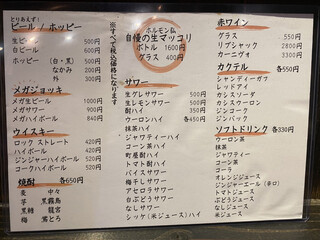 とりあえず!
ビール / ホッピー
生ビール 500円
白ビール 600円
ホッピー (白・黒) 500円
なかみ 200円
外 300円
メガジョッキ
メガ生ビール 1000円
メガサワー 900円
メガハイボール 840円
ウイスキー
ロック ストレート 420円
ハイボール 420円
ジンジャーハイボール 520円
コークハイボール 520円
焼酎 各650円
麦 中々
芋 黒霧島
黒糖 龍宮
梅 鶯とろ
※すべて税込価格になります
ホルモン仏
自慢の生マッコリ
ボトル 1600円
グラス 400円
サワー
生グレサワー 500円
生レモンサワー 500円
酎ハイ 350円
ウーロンハイ 各480円
抹茶ハイ
ジャワティーハイ
コーン茶ハイ
町屋酎ハイ
トマト酎ハイ
バイスサワー
梅干しサワー
アセロラサワー
白ぶどうサワー
なしサワー
シッケ(米ジュース)ハイ
赤ワイン
グラス 550円
リブシャック 2800円
カーニヴォ 3300円
カクテル 各550円
シャンディーガフ
レッドアイ
カシスソーダ
カシスウーロン
ジンコーク
ジンバック
ソフトドリンク 各330円
ウーロン茶
抹茶
ジャワティー
コーン茶
コーラ
オレンジジュース
ジンジャーエール(辛口)
トマトジュース
ぶどうジュース
なしジュース
米ジュース